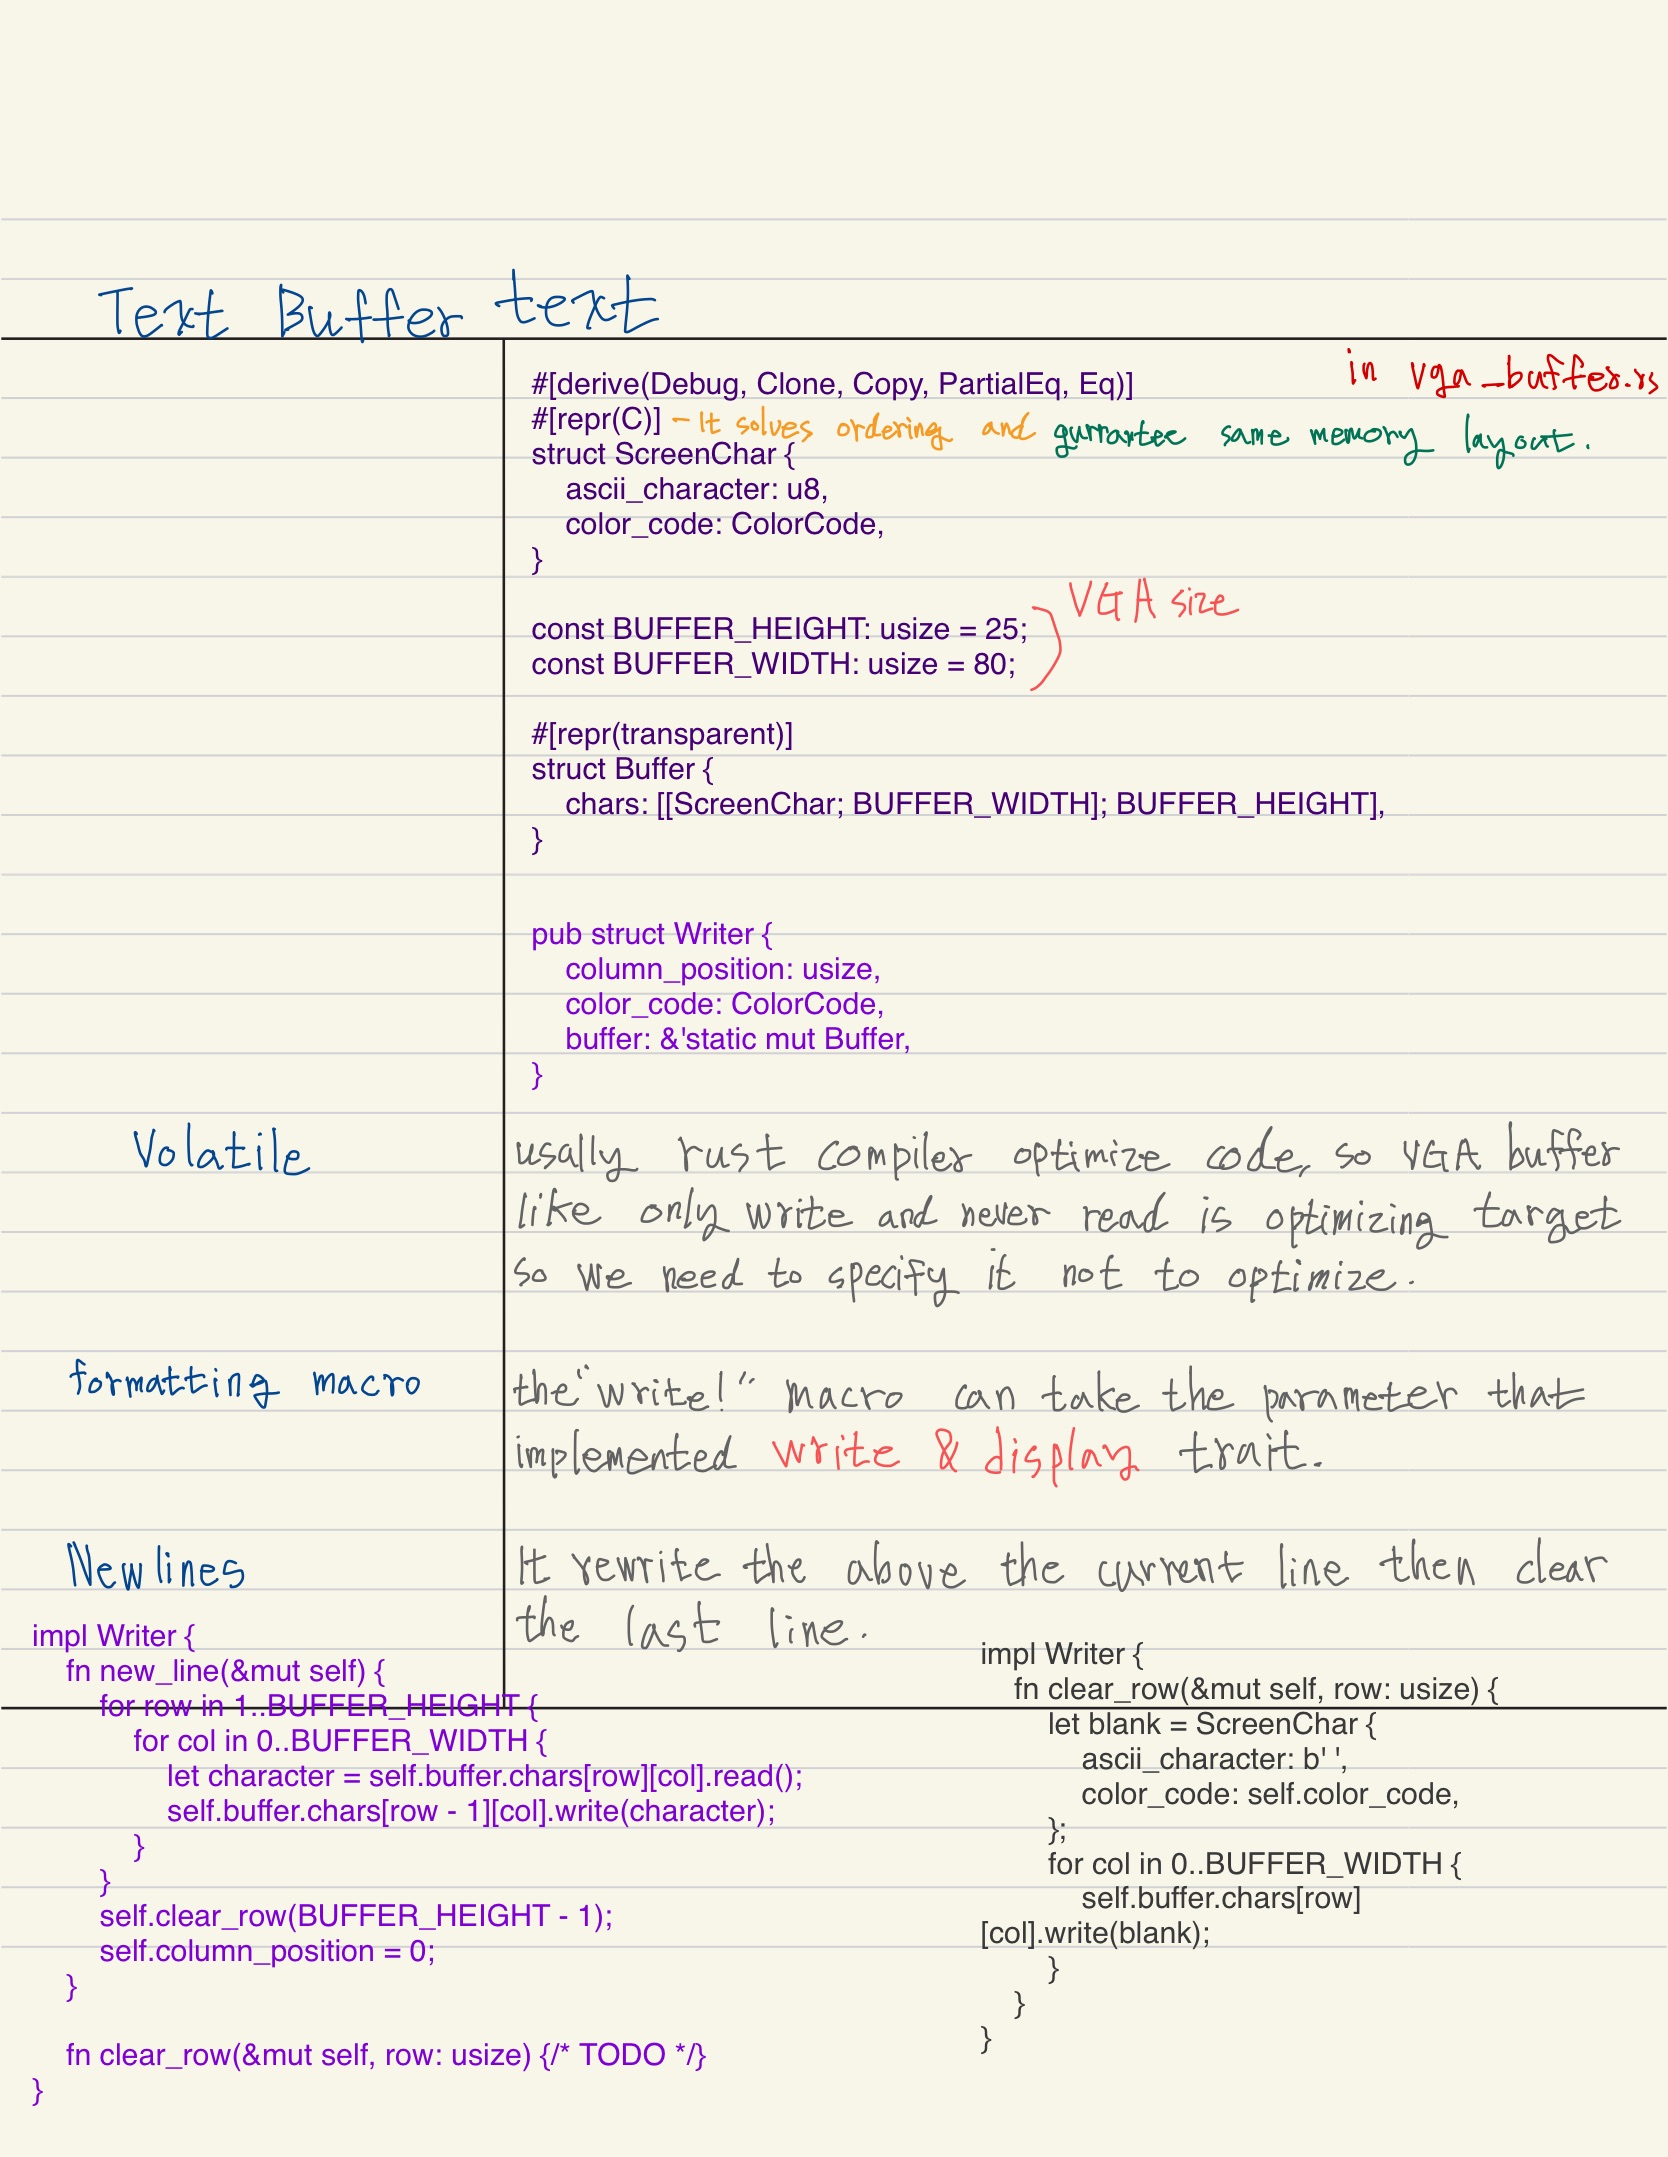 Text Buffer text
in vga_buffer.rs
#[derive(Debug, Clone, Copy, PartialEq, Eq)]
#[repr(C)] - It solves ordering and gurrartee same memory layout.
struct ScreenChar {
ascii_character: u8,
color_code: ColorCode,
}
VGA size
const BUFFER_HEIGHT: usize = 25;
const BUFFER_WIDTH: usize = 80;
#[repr(transparent)]
struct Buffer {
chars: [[ScreenChar; BUFFER_WIDTH]; BUFFER_HEIGHT],
}
pub struct Writer {
column_position: usize,
color_code: ColorCode,
buffer: &'static mut Buffer,
}
Volatile
usally rust compiler optimize code, so VGA buffer
like only write and never read is optimizing target
so we need to specify it not to optimize.
formatting macro
the "write!" macro can take the parameter that
implemented write & display trait.
Newlines
It rewrite the above the current line then clear
the last line.
impl Writer {
fn new_line(&mut self) {
for row in 1..BUFFER_HEIGHT {
for col in 0..BUFFER_WIDTH {
let character = self.buffer.chars[row][col].read();
self.buffer.chars[row - 1][col].write(character);
}
}
self.clear_row(BUFFER_HEIGHT - 1);
self.column_position = 0;
}
fn clear_row(&mut self, row: usize) {/* TODO */}
}
impl Writer {
fn clear_row(&mut self, row: usize) {
let blank = ScreenChar {
ascii_character: b' ',
color_code: self.color_code,
};
for col in 0..BUFFER_WIDTH {
self.buffer.chars[row]
[col].write(blank);
}
}
}